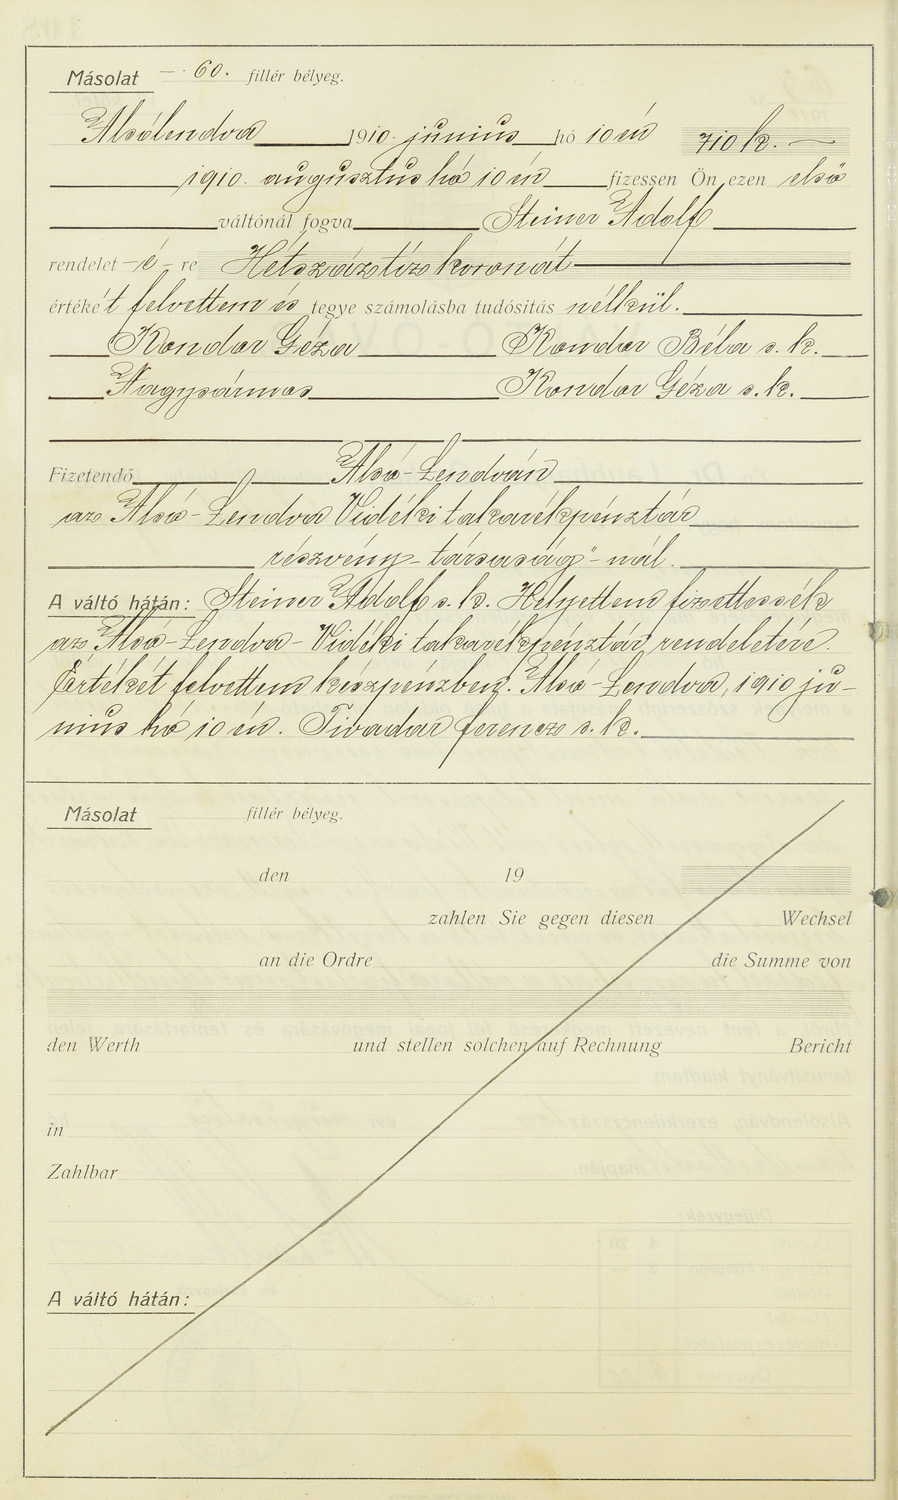 Másolat — 60. fillér bélyeg.
Alsólendva 1910. junius hó 10 én 710 k. —
1910. augusztus hó 10 én fizessen Ön ezen első
váltónál fogva Steiner Adolf
rendelet -é- re Hétszáztiz koronát
értékét felvettem és tegye számolásba tudósítás nélkül.
Kondor Géza Kondor Béla s. k.
Nagysármás Kondor Géza s. k.
Fizetendő Alsó-Lendván
az Alsó-Lendva Vidéki takarékpénztár
részvény-társaság"-nál.
A váltó hátán: Steiner Adolf s. k. Helyettem fizettessék
az Alsó-Lendva-Vidéki takarékpénztár rendeletére.
Értékét felvettem készpénzben. Alsó-Lendva, 1910 ju-
nius hó 10 én. Tivadar ferencz s. k.
Másolat fillér bélyeg.
den 19
zahlen Sie gegen diesen Wechsel
an die Ordre die Summe von
den Werth und stellen solchen auf Rechnung Bericht
in
Zahlbar
A váltó hátán: